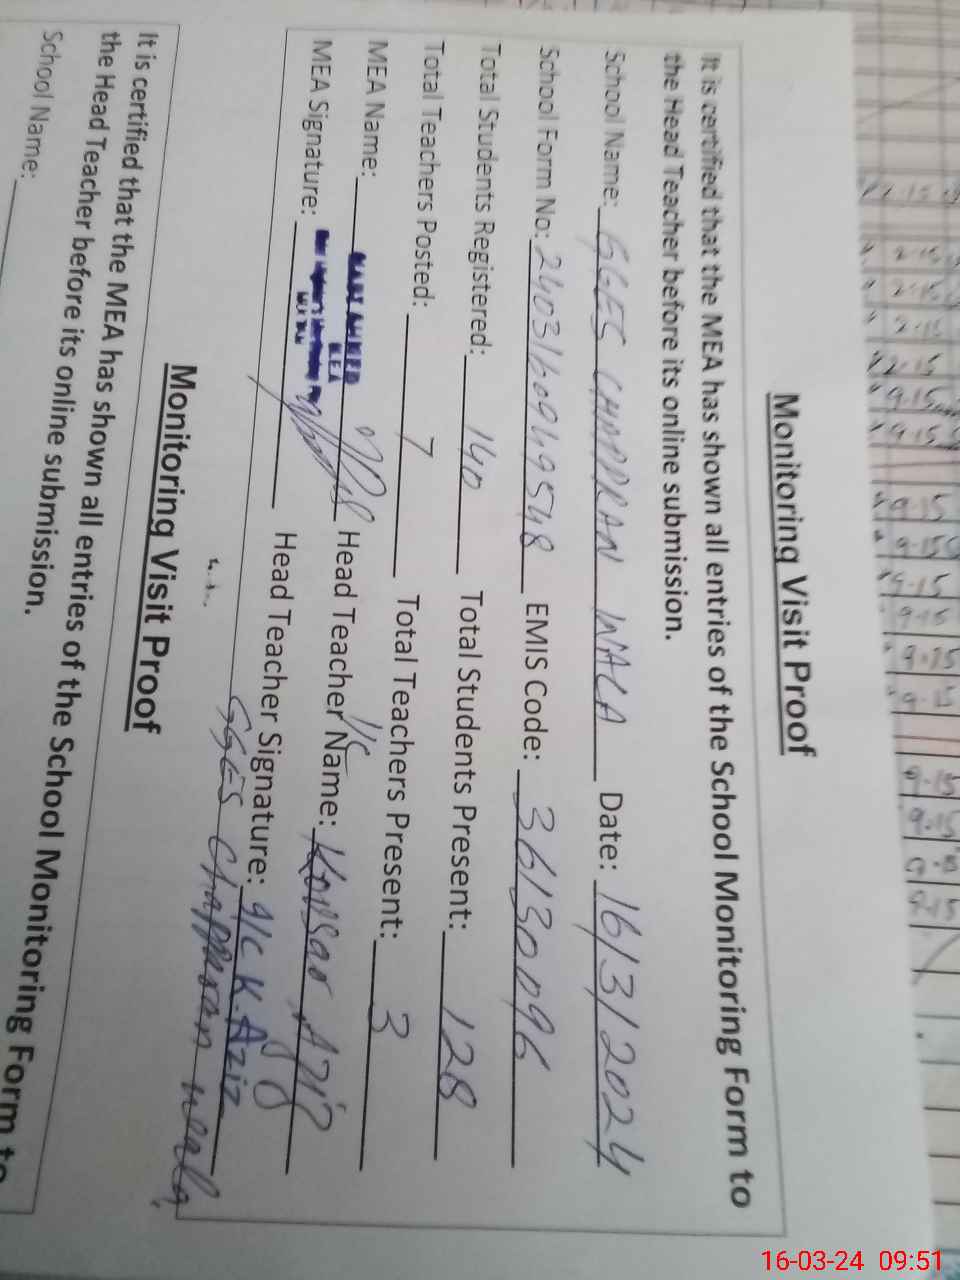 Monitoring Visit Proof
It is certified that the MEA has shown all entries of the School Monitoring Form to
the Head Teacher before its online submission.
School Name: GGES CHAPPRAN WALA Date: 16/3/2024
School Form No: 2403160949548 EMIS Code: 36130096
Total Students Registered: 140 Total Students Present: 128
Total Teachers Posted: 7 Total Teachers Present: 3
MEA Name: AHMED MEA Head Teacher I/C Name: Kousar Aziz
MEA Signature: Head Teacher Signature: I/C K. Aziz
GGES Chappran wala
Monitoring Visit Proof
It is certified that the MEA has shown all entries of the School Monitoring Form to
the Head Teacher before its online submission.
School Name:
9-15
9-15
9-15
9-15
9-15
9-15
9-15
9-15
9-15
16-03-24 09:51